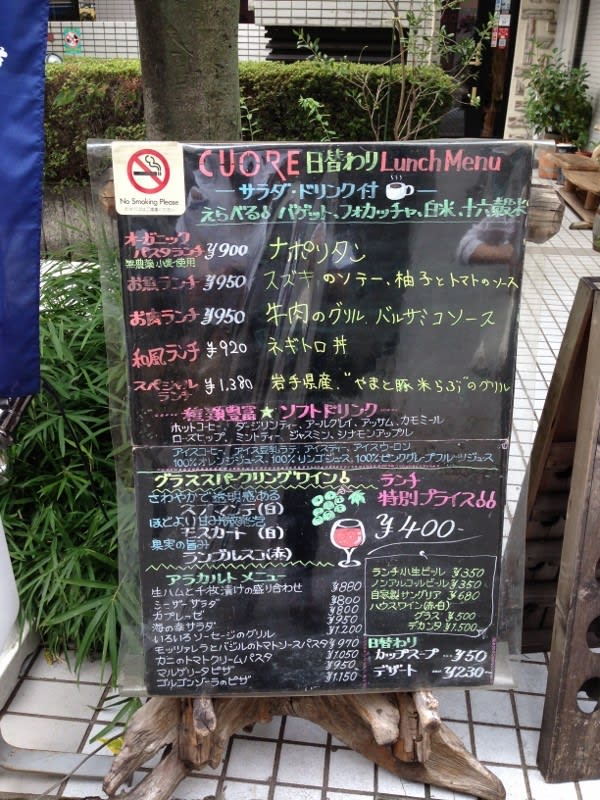 No Smoking Please
CUORE 日替わり Lunch Menu
サラダ・ドリンク付
えらべる バゲット、フォカッチャ、白米、十六穀米
オーガニック パスタランチ ¥900 ナポリタン
無農薬小麦使用
お魚ランチ ¥950 スズキのソテー、柚子とトマトのソース
お肉ランチ ¥950 牛肉のグリル、バルサミコソース
和風ランチ ¥920 ネギトロ丼
スペシャルランチ ¥1,380 岩手県産、"やまと豚米らぶ"のグリル
種類豊富★ソフトドリンク
ホットコーヒー、ダージリンティー、アールグレイ、アッサム、カモミール
ローズヒップ、ミントティー、ジャスミン、シナモンアップル
アイスコーヒー、アイス豆乳ラテ、アイスティー、アイスウーロン
100%オレンジジュース、100%リンゴジュース、100%ピンクグレープフルーツジュース
グラススパークリングワイン
さわやかで透明感ある
スプマンテ(白)
ほどよい甘み微発泡
モスカート(白)
果実の旨み
ランブルスコ(赤)
ランチ
特別プライス
¥400-
ランチ小生ビール ¥350
ノンアルコールビール ¥350
自家製サングリア ¥680
ハウスワイン(赤・白)
グラス ¥500
デカンタ ¥1,500
アラカルトメニュー
生ハムと千枚漬けの盛り合わせ ¥880
シーザーサラダ ¥800
カプレーゼ ¥800
海の幸サラダ ¥950
いろいろソーセージのグリル ¥1,200
モッツァレラとバジルのトマトソースパスタ ¥970
カニのトマトクリームパスタ ¥1,050
マルゲリータピザ ¥950
ゴルゴンゾーラのピザ ¥1,150
日替わり
カップスープ … ¥50
デザート … ¥230-